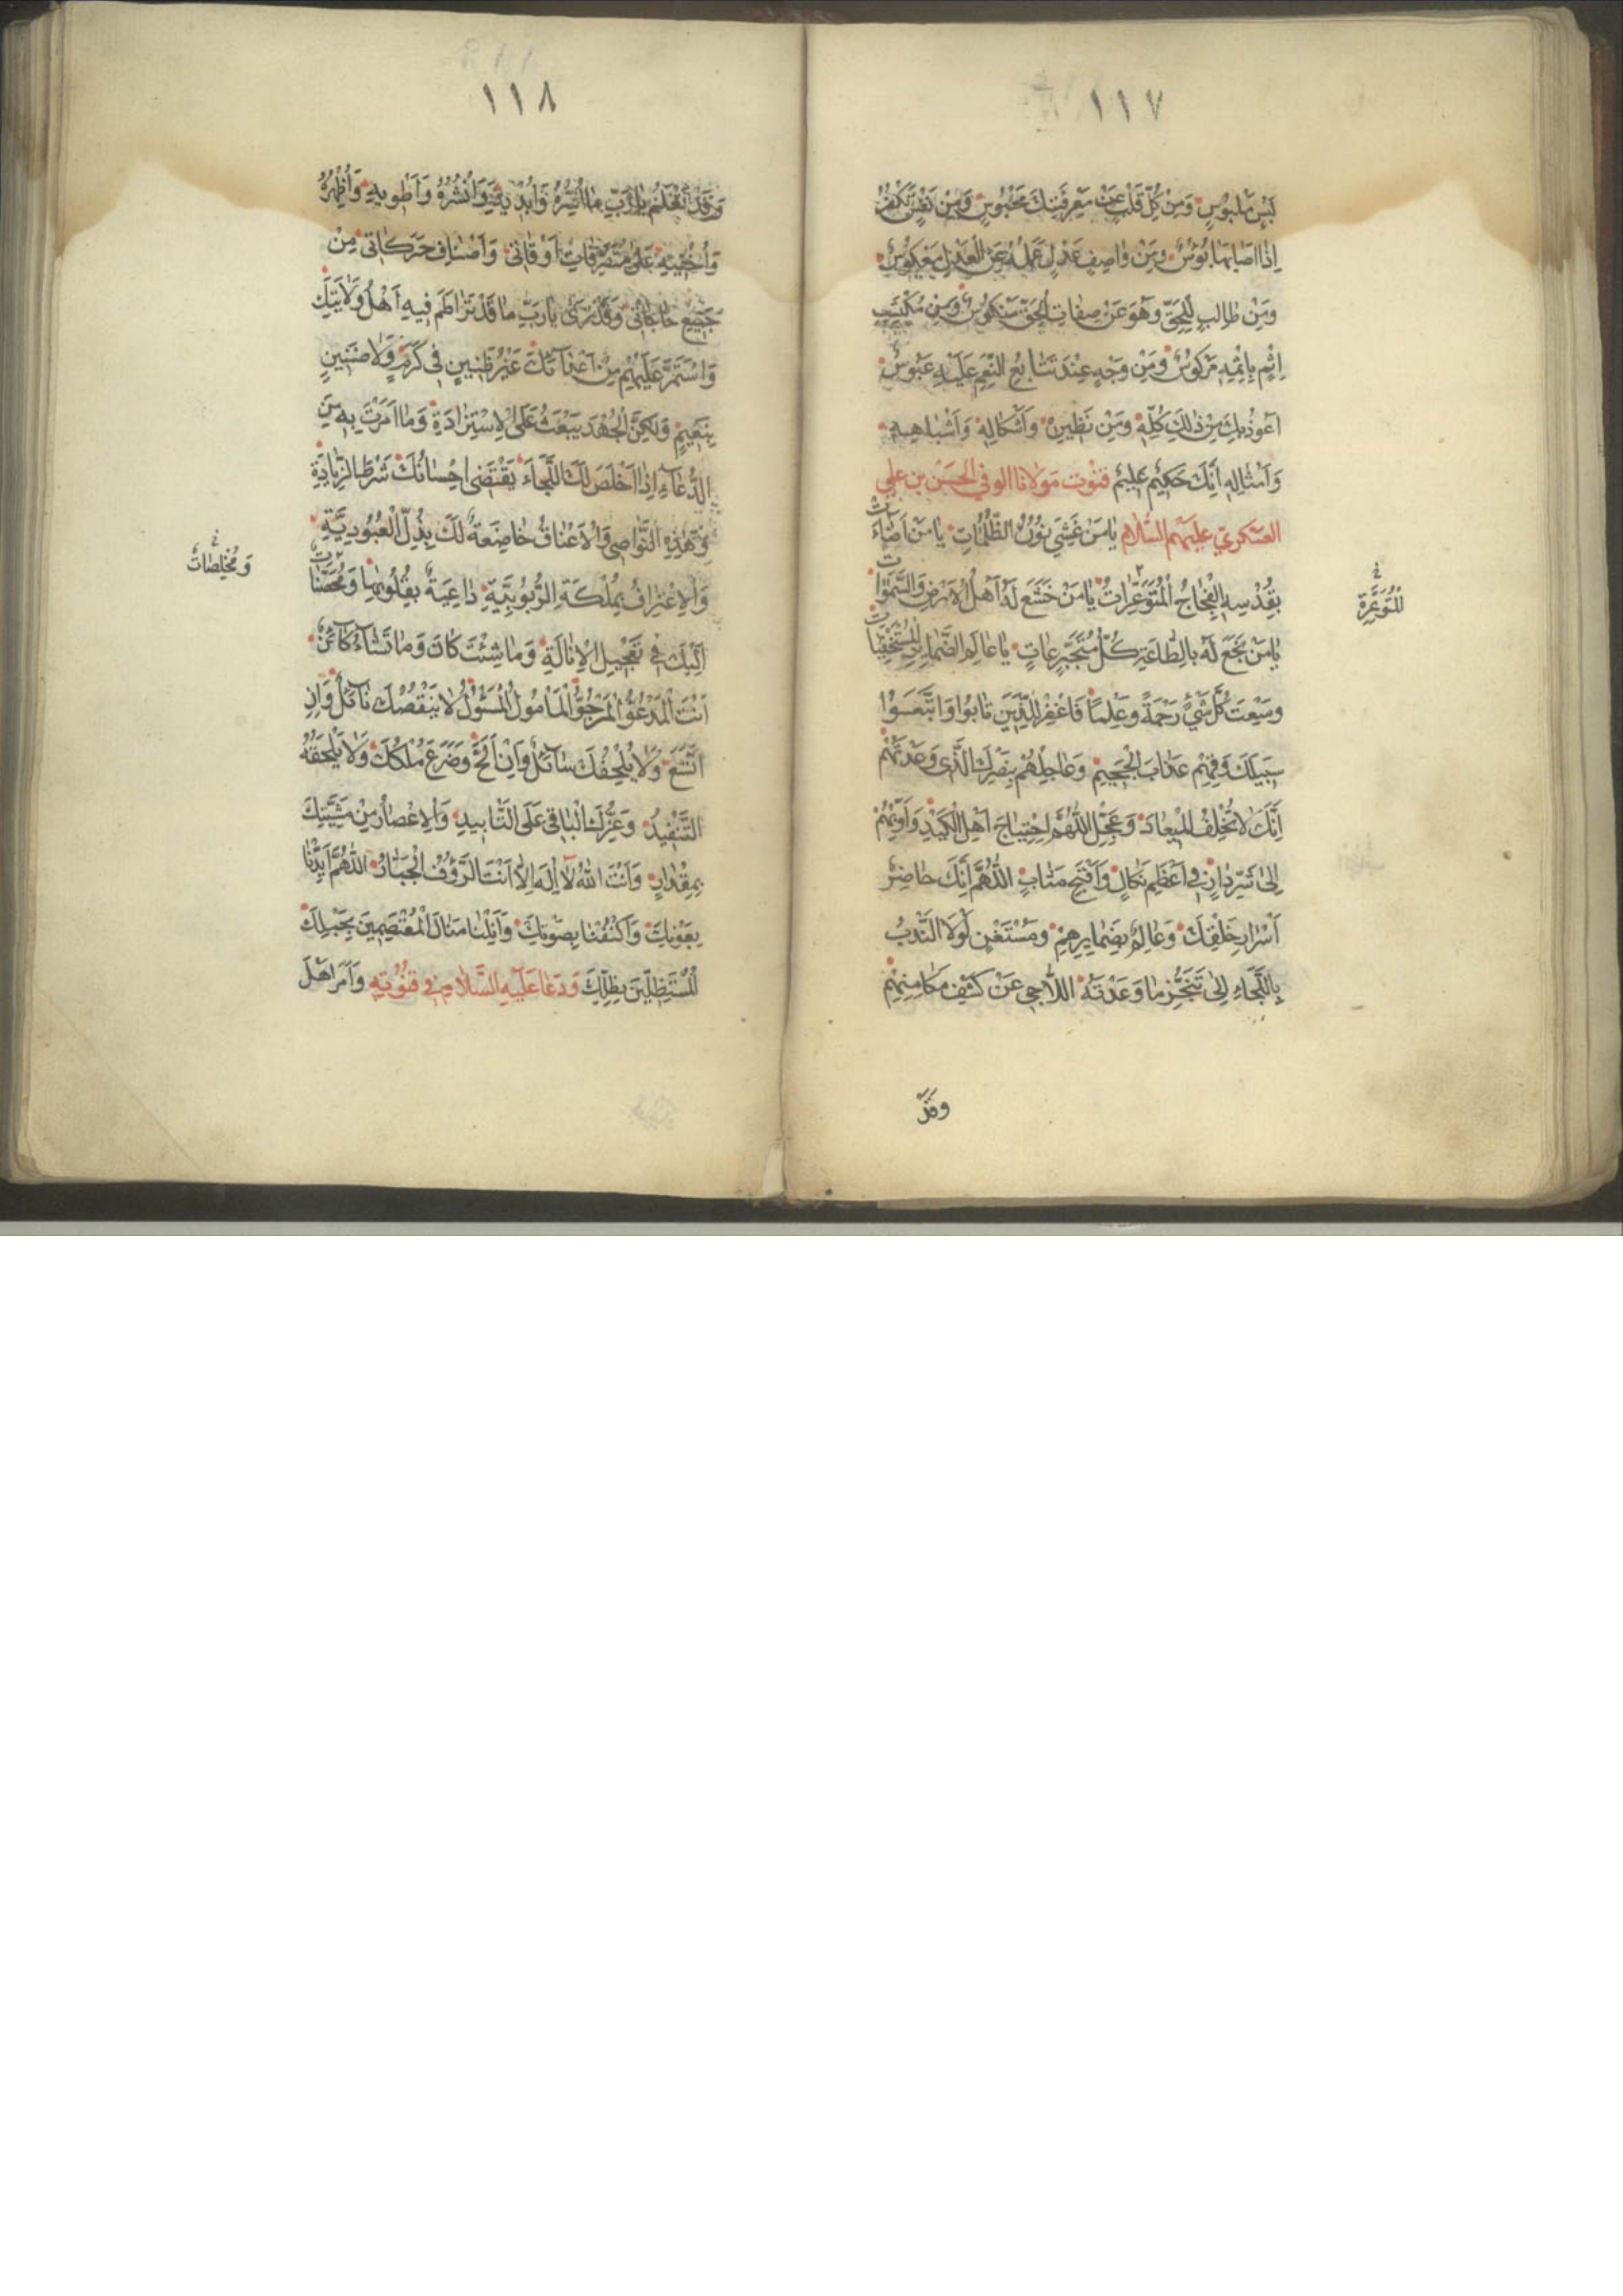 ١١٧
لَبْسٍ مَلْبُوسٍ وَمِنْ كُلِّ قَلْبٍ عَنْ مَعْرِفَتِكَ مَحْبُوسٍ وَمِنْ نَفْسٍ تَكْفُرُ
اِذَا اَصَابَهَا بُؤْسٌ وَمِنْ وَاصِفِ عَدْلٍ عَمَلُهُ عَنِ الْعَدْلِ مَعْكُوسٌ
وَمِنْ طَالِبٍ لِلْحَقِّ وَهُوَ عَنْ صِفَاتِ الْحَقِّ مَنْكُوسٌ وَمِنْ مُكْتَسِبِ
اِثْمٍ بِاِثْمِهِ مَرْكُوسٌ وَمِنْ وَجْهٍ عِنْدَ تَتَابُعِ النِّعَمِ عَلَيْهِ عَبُوسٌ
اَعُوذُ بِكَ مِنْ ذٰلِكَ كُلِّهِ وَمِنْ نَظِيرِهِ وَاَشْكَالِهِ وَاَشْبَاهِهِ
وَاَمْثَالِهِ اِنَّكَ حَكِيمٌ عَلِيمٌ قنوت مَوْلانا الوفي الحَسَن بن علي
العسكري عليهم السلام يَا مَنْ غَشِيَ نُورُهُ الظُّلُمَاتِ يَا مَنْ اَضَاءَتْ
بِقُدْسِهِ الْفِجَاجُ الْمُتَوَعِّرَاتُ يَا مَنْ خَشَعَ لَهُ اَهْلُ الْاَرْضِ وَالسَّمٰوَاتِ
لِلْمُتَوَعِّرَةِ خ
يَا مَنْ بَخَعَ لَهُ بِالطَّاعَةِ كُلُّ مُتَجَبِّرٍ عَاتٍ يَا عَالِمَ الضَّمَائِرِ الْمُسْتَخْفِيَاتِ
وَسِعْتَ كُلَّ شَيْءٍ رَحْمَةً وَعِلْمًا فَاغْفِرْ لِلَّذِينَ تَابُوا وَاتَّبَعُوا
سَبِيلَكَ وَقِهِمْ عَذَابَ الْجَحِيمِ وَعَاجِلْهُمْ بِنَصْرِكَ الَّذِي وَعَدْتَهُمْ
اِنَّكَ لَا تُخْلِفُ الْمِيعَادَ وَعَجِّلِ اللّٰهُمَّ اجْتِيَاحَ اَهْلِ الْكَيْدِ وَاَوِّبْهُمْ
اِلٰى شَرِّ دَارٍ فِي اَعْظَمِ نَكَالٍ وَاَقْبَحِ مَتَابٍ اَللّٰهُمَّ اِنَّكَ حَاضِرُ
اَسْرَارِ خَلْقِكَ وَعَالِمٌ بِضَمَائِرِهِمْ وَمُسْتَغْنٍ لَوْلَا النَّدْبُ
بِاللَّجَاءِ اِلٰى تَنَجُّزِ مَا وَعَدْتَهُ اللَّاجِي عَنْ كَشْفِ مَكَامِنِهِمْ
وَقَدْ
١١٨
وَقَدْ تَعْلَمُ يَا رَبِّ مَا اُسِرُّهُ وَاُبْدِيهِ وَاَنْشُرُهُ وَاَطْوِيهِ وَاُظْهِرُهُ
وَاُخْفِيهِ عَلٰى مُتَصَرِّفَاتِ اَوْقَاتِي وَاَصْنَافِ حَرَكَاتِي مِنْ
جَمِيعِ حَاجَاتِي وَقَدْ تَرٰى يَا رَبِّ مَا قَدْ تَرَاطَمَ فِيهِ اَهْلُ وَلَايَتِكَ
وَاسْتَمَرَّ عَلَيْهِمْ مِنْ اَعْدَائِكَ غَيْرُ ظَنِينٍ فِي كَرَمٍ وَلَا ضَنِينٍ
بِنَعِيمٍ وَلٰكِنَّ الْجُهْدَ يَبْعَثُ عَلَى الْاِسْتِزَادَةِ وَمَا اَمَرْتَ بِهِ مِنَ
الدُّعَاءِ اِذَا اَخْلَصَ لَكَ اللَّجَاءَ يَقْتَضِي اِحْسَانُكَ شَرْطَ الزِّيَادَةِ
وَهٰذِهِ النَّوَاصِي وَالْاَعْنَاقُ خَاضِعَةٌ لَكَ بِذُلِّ الْعُبُودِيَّةِ
وَالْاِعْتِرَافِ بِمُلْكَةِ الرُّبُوبِيَّةِ دَاعِيَةٌ بِقُلُوبِهَا وَمُحْصَنَاتٌ
وَمُخْلِصَاتٌ خ
اِلَيْكَ فِي تَعْجِيلِ الْاِنَالَةِ وَمَا شِئْتَ كَانَ وَمَا تَشَاءُ كَائِنٌ
اَنْتَ الْمَدْعُوُّ الْمَرْجُوُّ الْمَأْمُولُ الْمَسْئُولُ لَا يَنْقُصُكَ نَائِلٌ وَاِنِ
اتَّسَعَ وَلَا يُلْحِفُكَ سَائِلٌ وَاِنْ اَلَحَّ وَضَرَعَ مُلْكُكَ وَلَا يَلْحَقُهُ
التَّنْفِيدُ وَعِزُّكَ الْبَاقِي عَلَى التَّأْبِيدِ وَالْاَعْصَارُ مِنْ مَشِيَّتِكَ
بِمِقْدَارٍ وَاَنْتَ اللّٰهُ لَا اِلٰهَ اِلَّا اَنْتَ الرَّؤُوفُ الْجَبَّارُ اَللّٰهُمَّ اَيِّدْنَا
بِعَوْنِكَ وَاكْنُفْنَا بِصَوْنِكَ وَاَنِلْنَا مَنَالَ الْمُعْتَصِمِينَ بِحَبْلِكَ
الْمُسْتَظِلِّينَ بِظِلِّكَ وَدَعَا عَلَيْهِ السَّلَامُ فِي قُنُوتِهِ وَاَمَرَ اَهْلَ